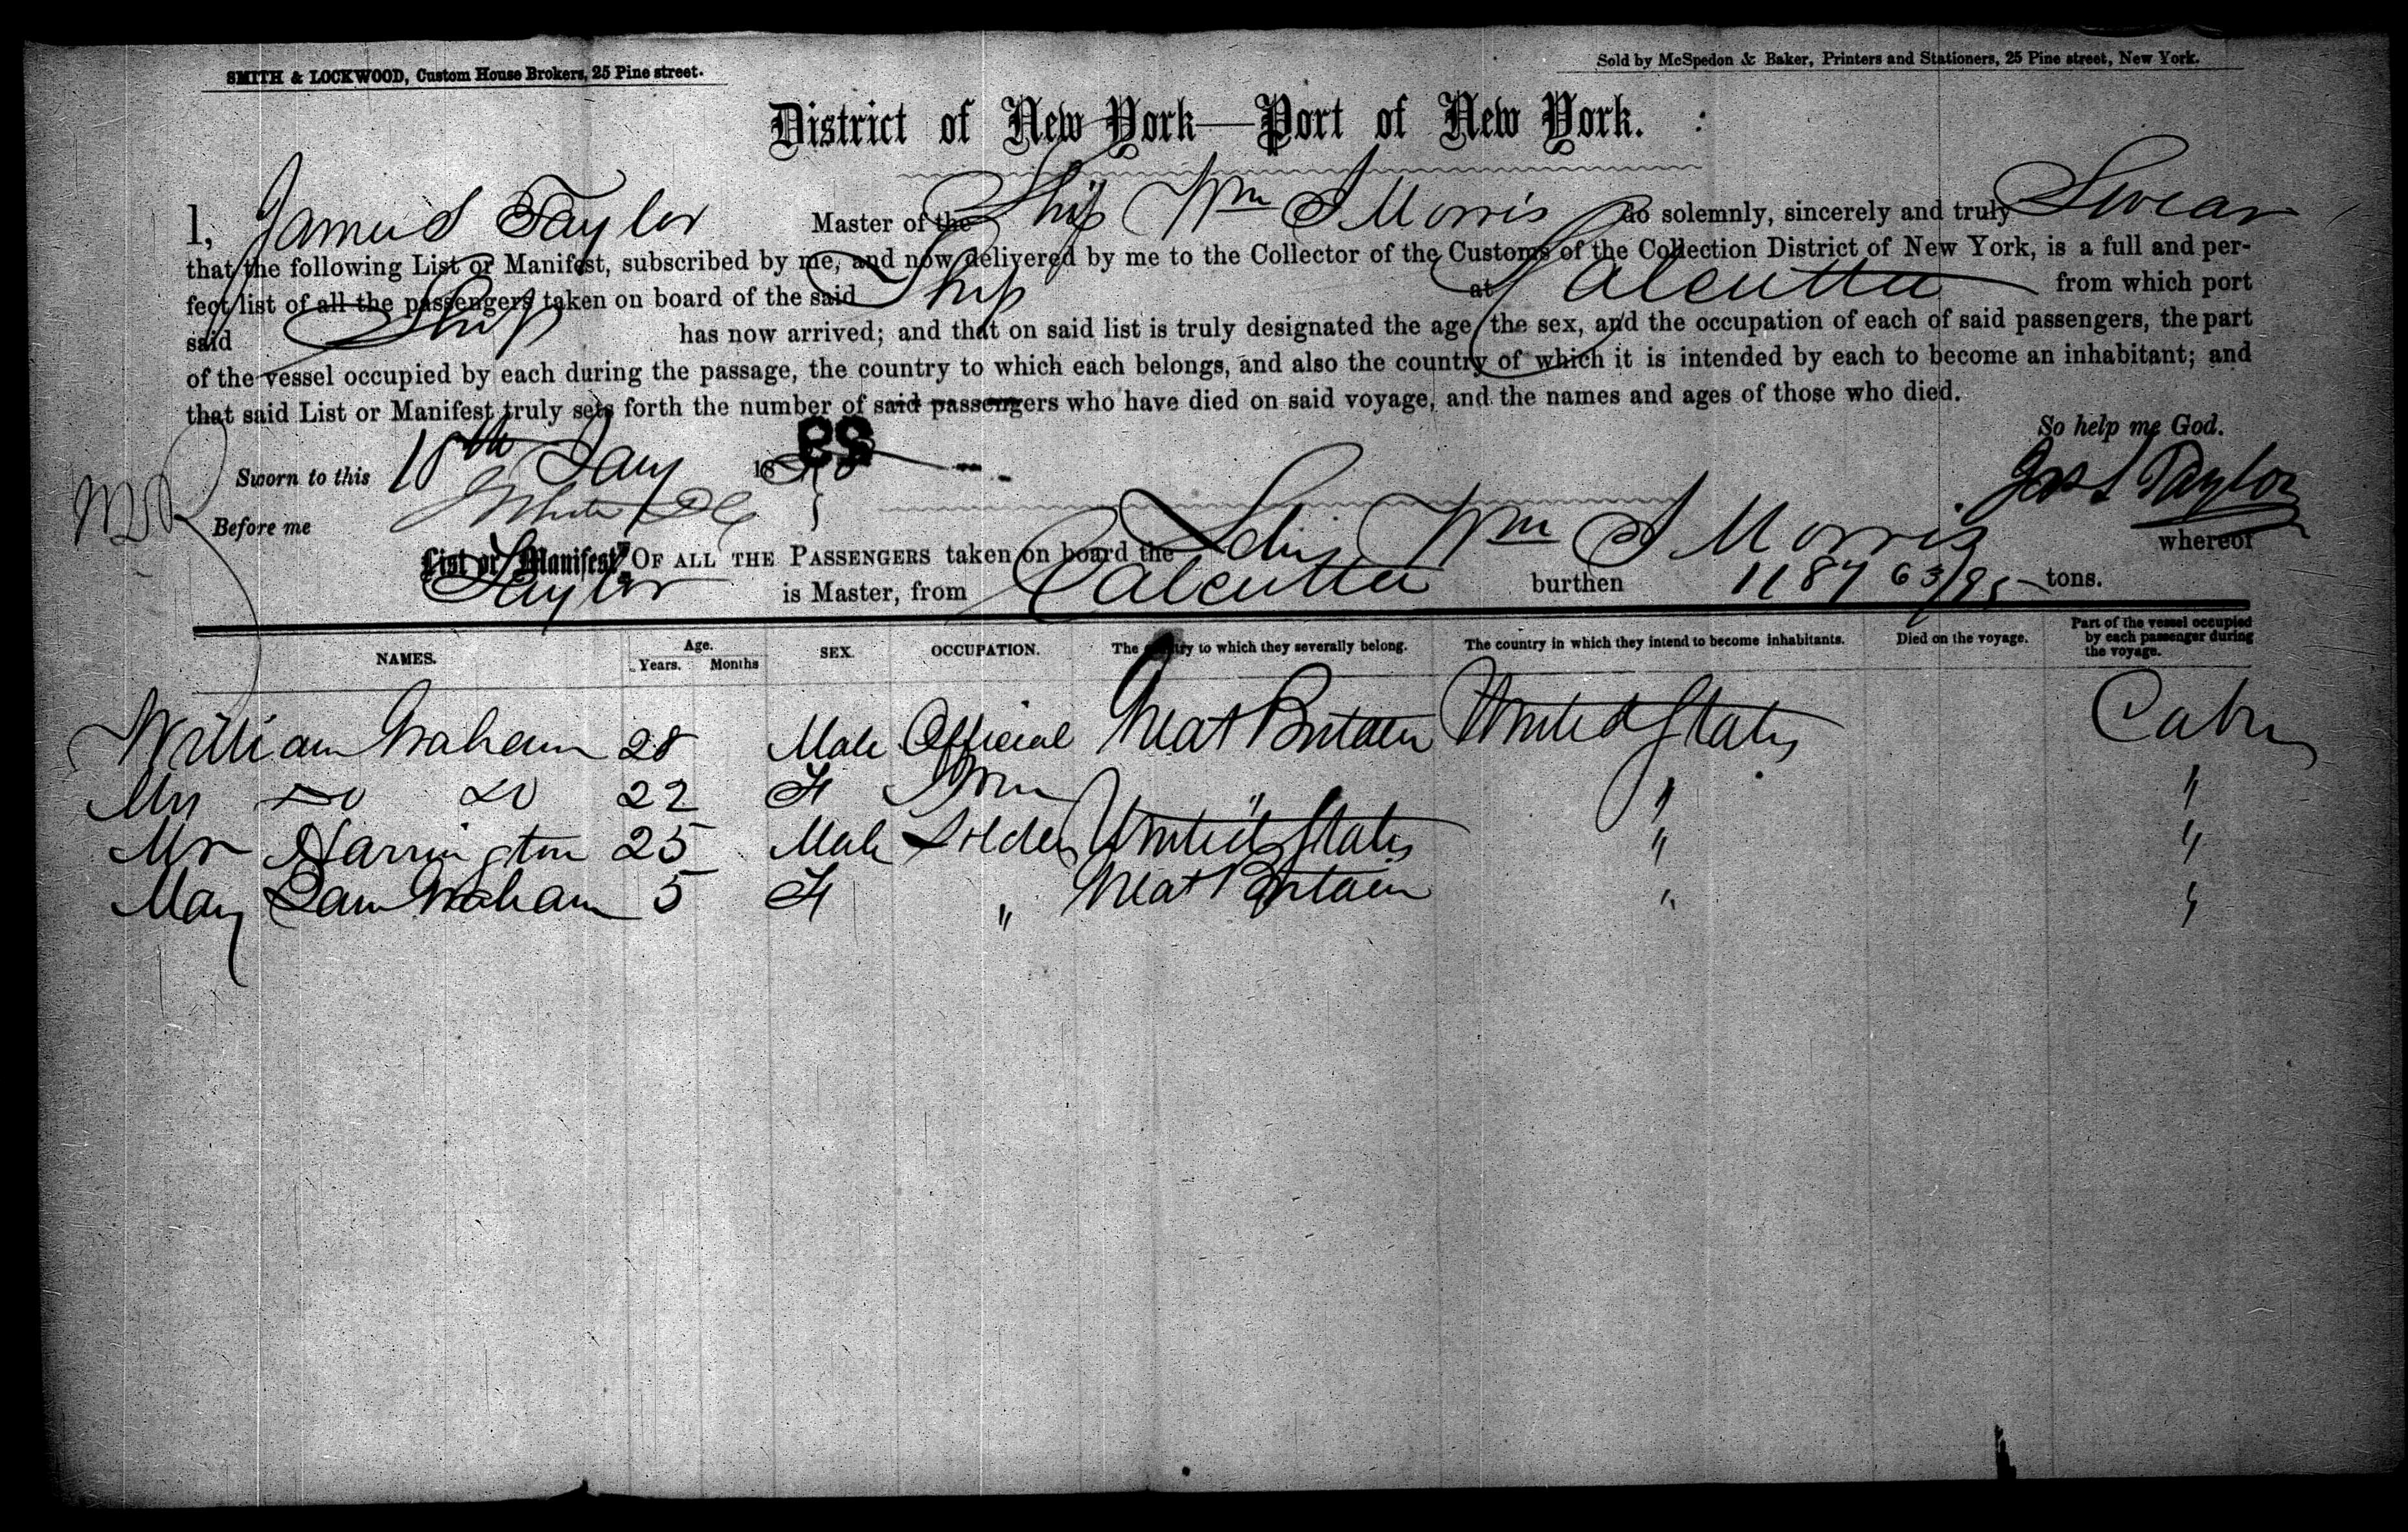 SMITH & LOCKWOOD, Custom House Brokers, 25 Pine street.
Sold by McSpedon & Baker, Printers and Stationers, 25 Pine street, New York.
District of New York—Port of New York.
I, James S Taylor Master of the Ship Wm S Morris do solemnly, sincerely and truly Swear
that the following List or Manifest, subscribed by me, and now delivered by me to the Collector of the Customs of the Collection District of New York, is a full and per-
fect list of all the passengers taken on board of the said Ship at Calcutta from which port
said Ship has now arrived; and that on said list is truly designated the age, the sex, and the occupation of each of said passengers, the part
of the vessel occupied by each during the passage, the country to which each belongs, and also the country of which it is intended by each to become an inhabitant; and
that said List or Manifest truly sets forth the number of said passengers who have died on said voyage, and the names and ages of those who died.
So help me God.
Sworn to this 18th Jany 18
Jas S Taylor
Before me
List or Manifest OF ALL THE PASSENGERS taken on board the Ship Wm S Morris whereof
Taylor is Master, from Calcutta burthen 1187 63/95 tons.
NAMES. Age. Years. Months SEX. OCCUPATION. The country to which they severally belong. The country in which they intend to become inhabitants. Died on the voyage. Part of the vessel occupied by each passenger during the voyage.
William Graham 28 Male Official Great Britain United States Cabin
Mrs Do Do 22 F " " "
Mr Harrington 25 Male Solder United States " "
Mary Graham 5 F " Great Britain " "